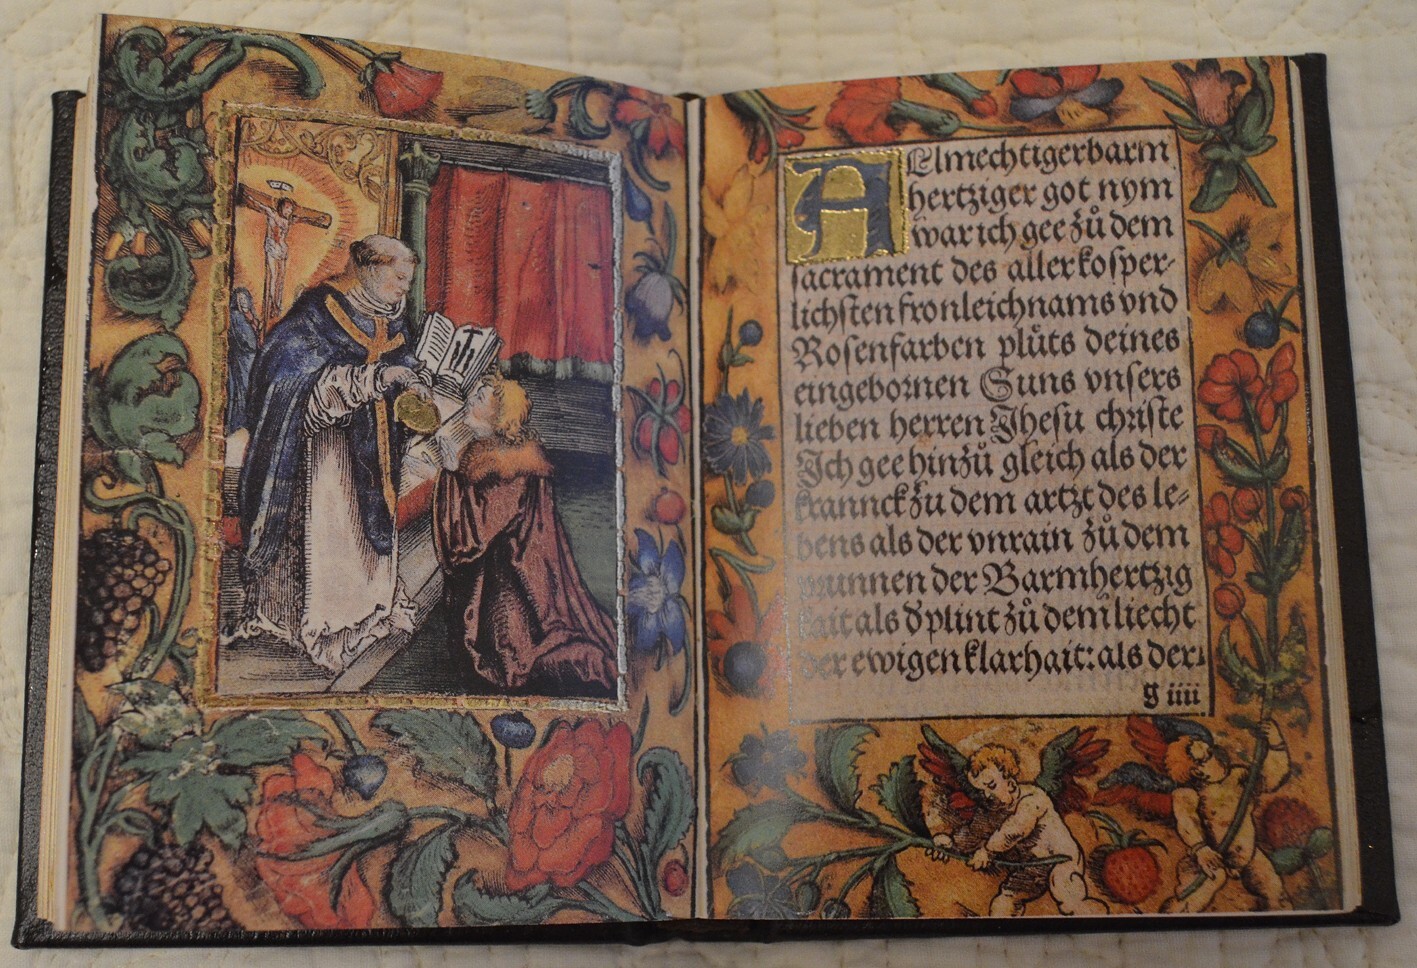 Almechtiger barm
hertziger got nym
war ich gee zů dem
sacrament des aller kosper-
lichsten fronleichnams vnd
Rosenfarben plůts deines
eingebornen Suns vnsers
lieben herren Jhesu christe
Ich gee hin zů gleich als der
kranck zu dem artzt des le-
bens als der vnrain zů dem
prunnen der Barmhertzig
kait als d plint zů dem liecht
der ewigen klarhait: als der
g iiii